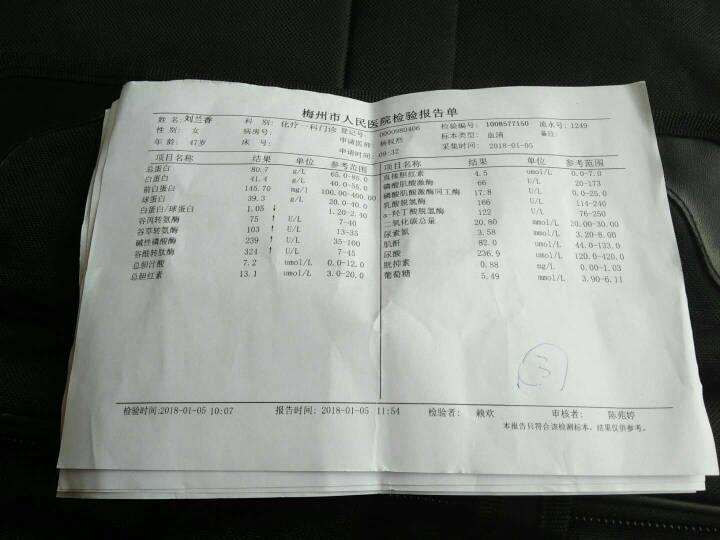 梅州市人民医院检验报告单
姓 名: 刘兰香 科 别: 化疗一科门诊 登记号: 0000980406 检验编号: 1008577150 流水号: 1249
性 别: 女 病房号: 申请医师: 杨权烈 标本类型: 血清 备注:
年 龄: 47岁 床 号: 申请时间: 09:32 采集时间: 2018-01-05
项目名称 结果 单位 参考范围
总蛋白 80.7 g/L 65.0-85.0
白蛋白 41.4 g/L 40.0-55.0
前白蛋白 145.70 mg/l 100.00-400.00
球蛋白 39.3 g/L 20.0-40.0
白蛋白/球蛋白 1.05 ↓ 1.20-2.40
谷丙转氨酶 75 ↑ U/L 7-40
谷草转氨酶 103 ↑ U/L 13-35
碱性磷酸酶 239 ↑ U/L 35-100
谷酰转肽酶 324 ↑ U/L 7-45
总胆汁酸 7.2 umol/L 0.0-12.0
总胆红素 13.1 umol/L 3.0-20.0
项目名称 结果 单位 参考范围
直接胆红素 4.5 umol/L 0.0-7.0
磷酸肌酸激酶 66 U/L 20-173
磷酸肌酸激酶同工酶 17.8 U/L 0.0-25.0
乳酸脱氢酶 166 U/L 114-240
a-羟丁酸脱氢酶 122 U/L 76-250
二氧化碳总量 20.80 mmol/L 20.00-30.00
尿素氮 3.58 mmol/L 3.20-8.00
肌酐 82.0 umol/L 44.0-133.0
尿酸 236.9 umol/L 120.0-420.0
胱抑素 0.88 mg/L 0.00-1.03
葡萄糖 5.49 mmol/L 3.90-6.11
3
检验时间:2018-01-05 10:07 报告时间: 2018-01-05 11:54 检验者: 赖欢 审核者: 陈苑婷
本报告只符合该检测标本, 结果仅供参考。